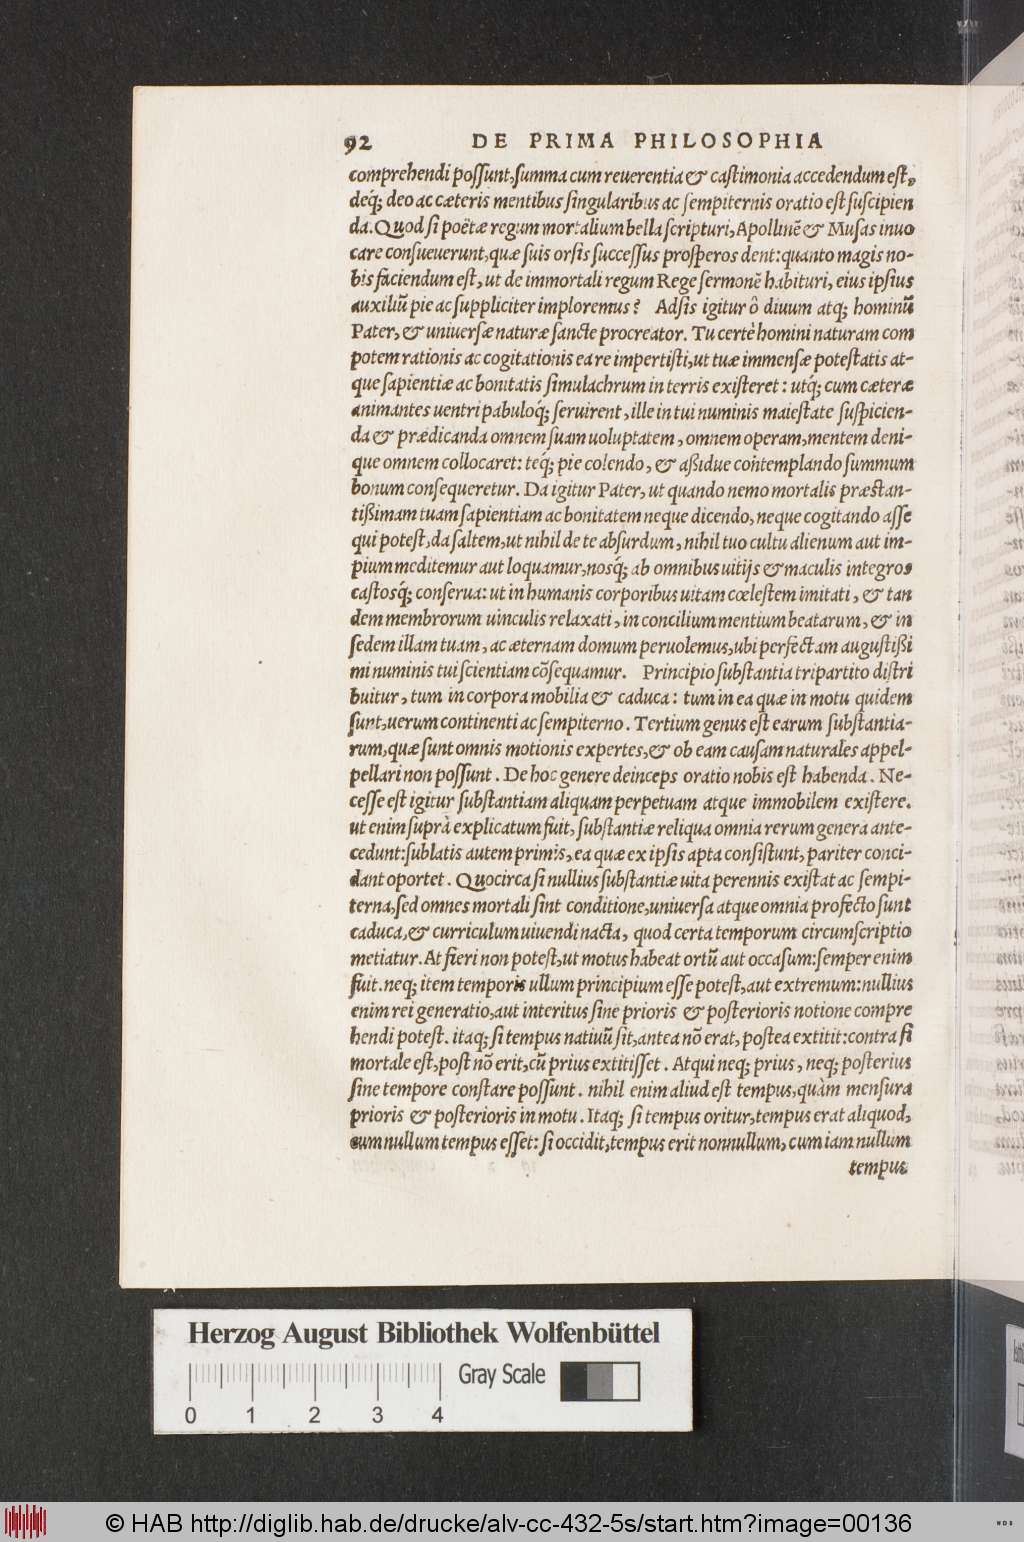 92 DE PRIMA PHILOSOPHIA
comprehendi possunt, summa cum reuerentia & castimonia accedendum est,
deq́; deo ac cæteris mentibus singularibus ac sempiternis oratio est suscipien
da. Quod si poëtæ regum mortalium bella scripturi, Apollinē & Musas inuo
care consueuerunt, quæ suis orsis successus prosperos dent: quanto magis no-
bis faciendum est, ut de immortali regum Rege sermonē habituri, eius ipsius
auxiliū pie ac suppliciter imploremus? Adsis igitur ô diuum atq; hominū
Pater, & uniuersæ naturæ sancte procreator. Tu certè homini naturam com
potem rationis ac cogitationis ea re impertisti, ut tuæ immensæ potestatis at-
que sapientiæ ac bonitatis simulachrum in terris existeret: utq́; cum cæteræ
animantes uentri pabuloq́; seruirent, ille in tui numinis maiestate suspicien-
da & prædicanda omnem suam uoluptatem, omnem operam, mentem deni-
que omnem collocaret: teq́; pie colendo, & aßidue contemplando summum
bonum consequeretur. Da igitur Pater, ut quando nemo mortalis præstan-
tißimam tuam sapientiam ac bonitatem neque dicendo, neque cogitando asse
qui potest, da saltem, ut nihil de te absurdum, nihil tuo cultu alienum aut im-
pium meditemur aut loquamur, nosq́; ab omnibus uitijs & maculis integros
castosq́; conserua: ut in humanis corporibus uitam cœlestem imitati, & tan
dem membrorum uinculis relaxati, in concilium mentium beatarum, & in
sedem illam tuam, ac æternam domum peruolemus, ubi perfectam augustißi
mi numinis tui scientiam cōsequamur. Principio substantia tripartito distri
buitur, tum in corpora mobilia & caduca: tum in ea quæ in motu quidem
sunt, uerum continenti ac sempiterno. Tertium genus est earum substantia-
rum, quæ sunt omnis motionis expertes, & ob eam causam naturales appel-
pellari non possunt. De hoc genere deinceps oratio nobis est habenda. Ne-
cesse est igitur substantiam aliquam perpetuam atque immobilem existere.
ut enim suprà explicatum fuit, substantiæ reliqua omnia rerum genera ante-
cedunt: sublatis autem primis, ea quæ ex ipsis apta consistunt, pariter conci-
dant oportet. Quocirca si nullius substantiæ uita perennis existat ac sempi-
terna, sed omnes mortali sint conditione, uniuersa atque omnia profecto sunt
caduca, & curriculum uiuendi nacta, quod certa temporum circumscriptio
metiatur. At fieri non potest, ut motus habeat ortū aut occasum: semper enim
fuit. neq; item temporis ullum principium esse potest, aut extremum: nullius
enim rei generatio, aut interitus sine prioris & posterioris notione compre
hendi potest. itaq; si tempus natiuū sit, antea nō erat, postea extitit: contra si
mortale est, post nō erit, cū prius extitisset. Atqui neq; prius, neq; posterius
sine tempore constare possunt. nihil enim aliud est tempus, quàm mensura
prioris & posterioris in motu. Itaq; si tempus oritur, tempus erat aliquod,
cum nullum tempus esset: si occidit, tempus erit nonnullum, cum iam nullum
tempus
Herzog August Bibliothek Wolfenbüttel
Gray Scale
0 1 2 3 4
© HAB http://diglib.hab.de/drucke/alv-cc-432-5s/start.htm?image=00136